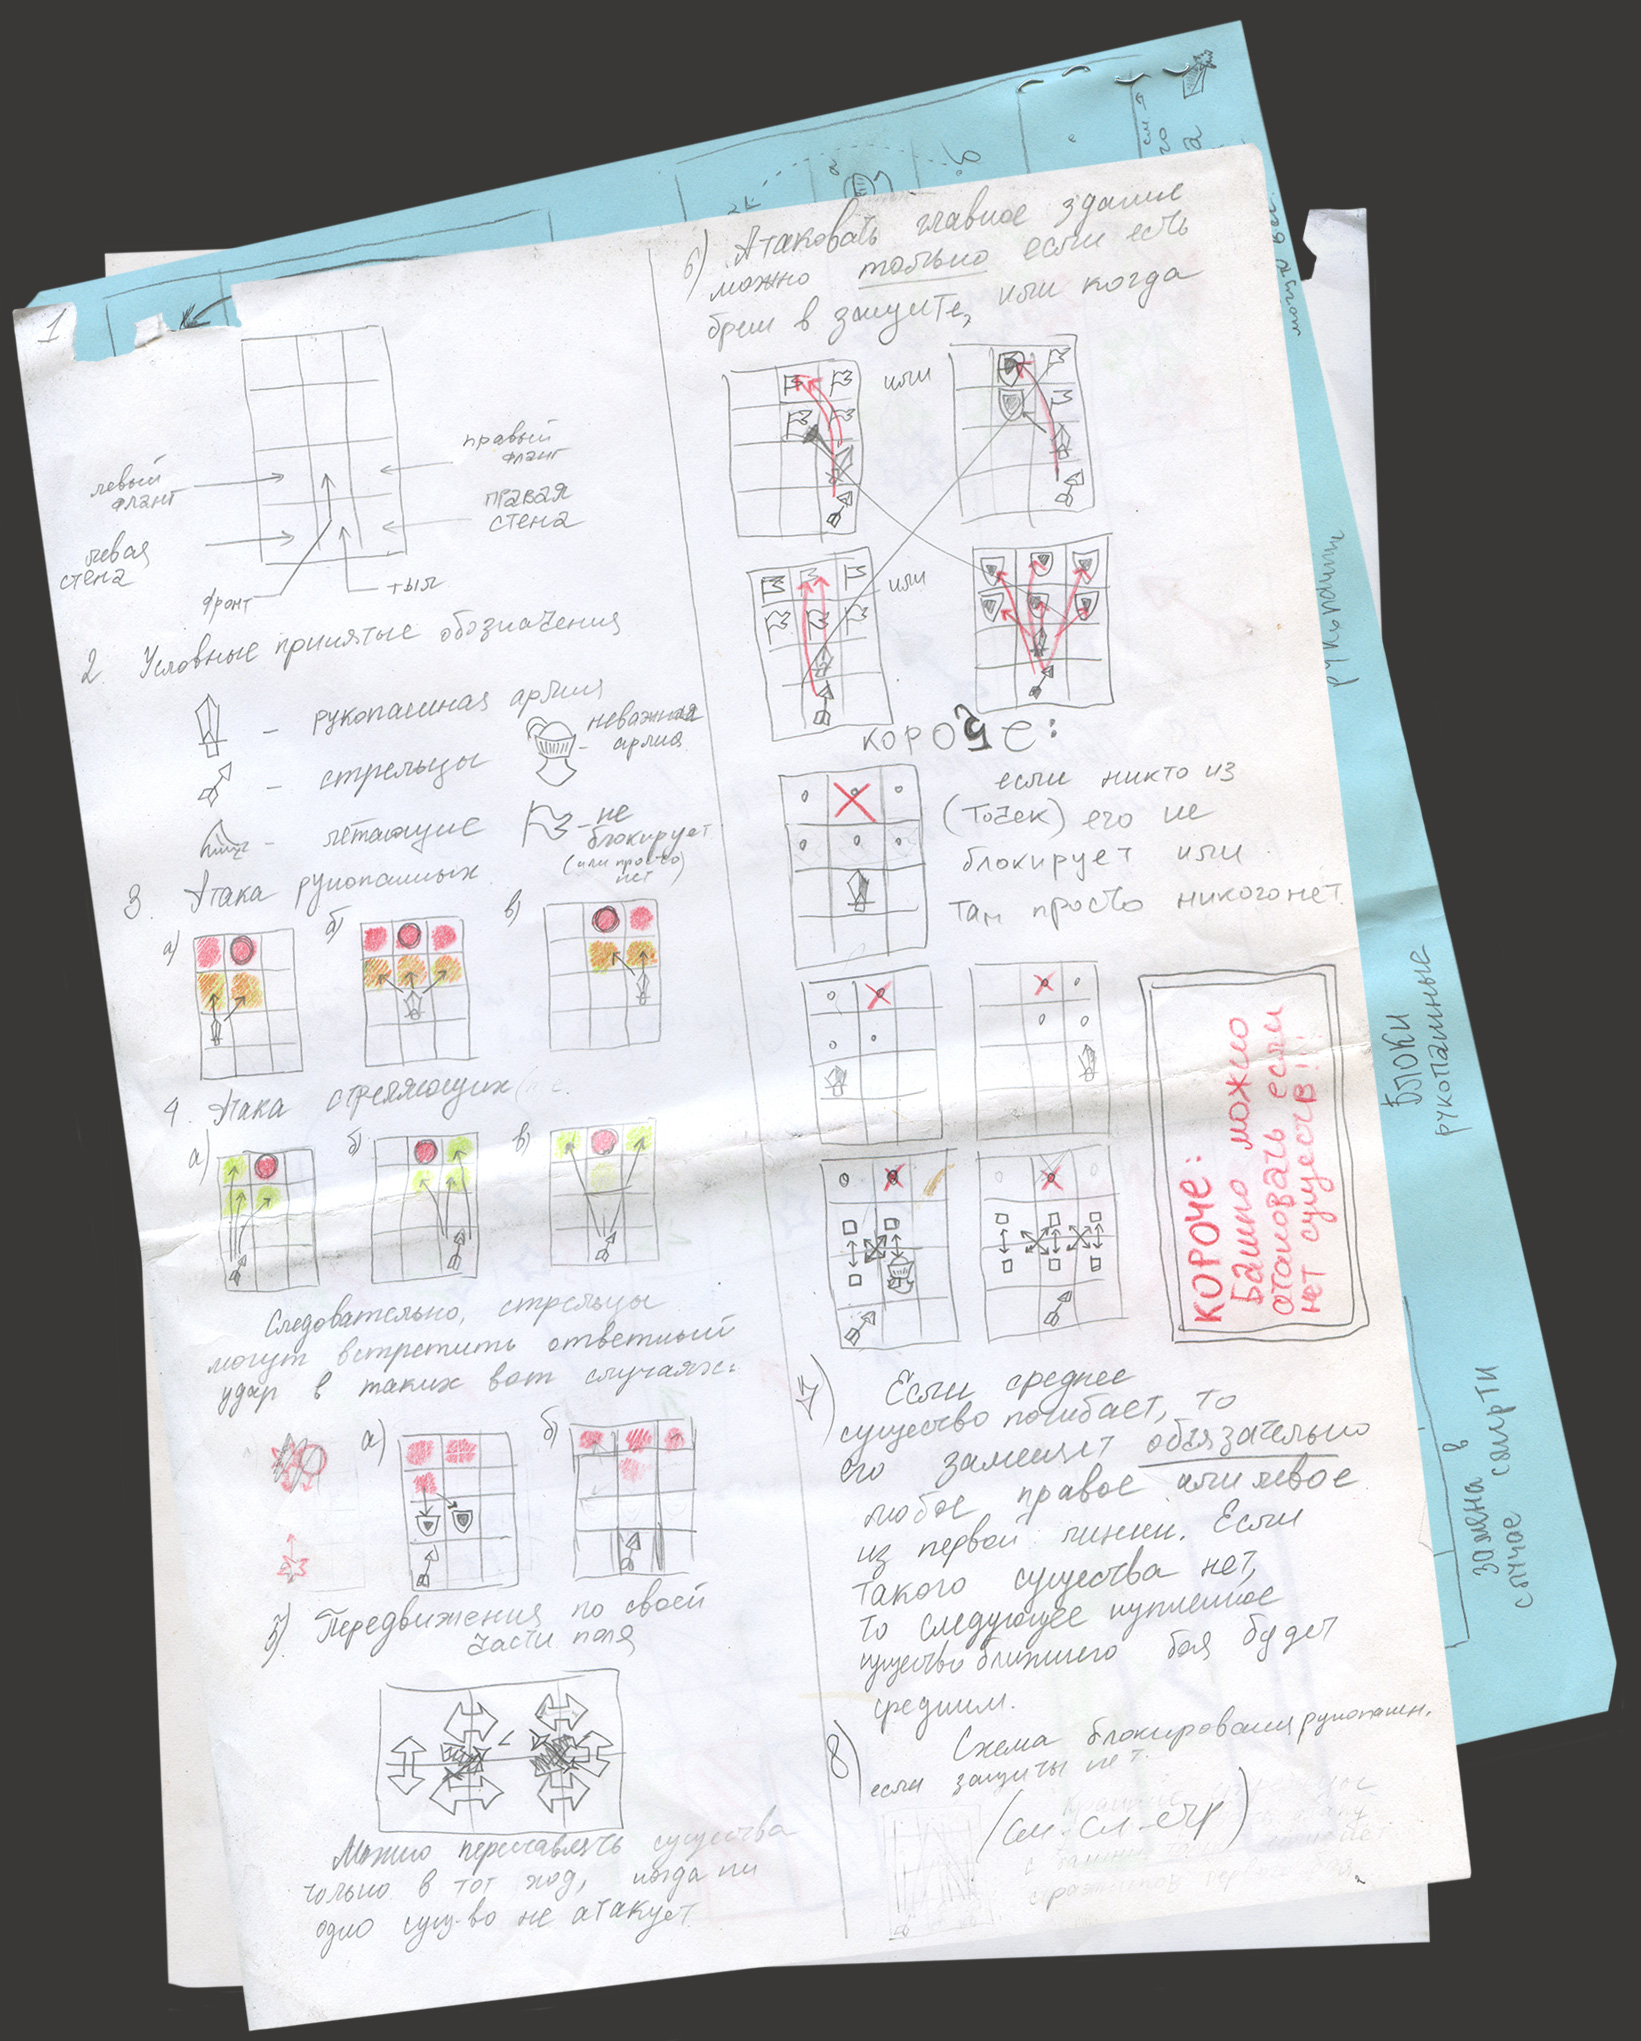 1
левый
фланг
правый
фланг
левая
стена
правая
стена
фронт
тыл
2. Условные принятые обозначения
- рукопашная армия
- неважная
армия
- стрельцы
- летающие
- не
блокирует
(или просто
нет)
3. Атака рукопашных
а)
б)
в)
4. Атака стреляющих
а)
б)
в)
Следовательно, стрельцы
могут встретить ответный
удар в таких вот случаях:
а)
б)
5) Передвижения по своей
части поля
Можно переставлять существа
только в тот ход, когда ни
одно сущ-во не атакует.
6) Атаковать главное здание
можно только если есть
бреш в защите, или когда
или
или
КОРОЧЕ:
если никто из
(точек) его не
блокирует или
там просто никого нет.
КОРОЧЕ:
Башню можно
атаковать если
нет существ!
7) Если среднее
существо погибает, то
его заменяет обязательно
любое правое или левое
из первой линии. Если
такого существа нет,
то следующее купленное
существо ближнего боя будет
средним.
8) Схема блокирования рукопашн.
если защиты нет.
(см. сл. стр)
рукопашн
Блоки
рукопашные
замена в
случае смерти